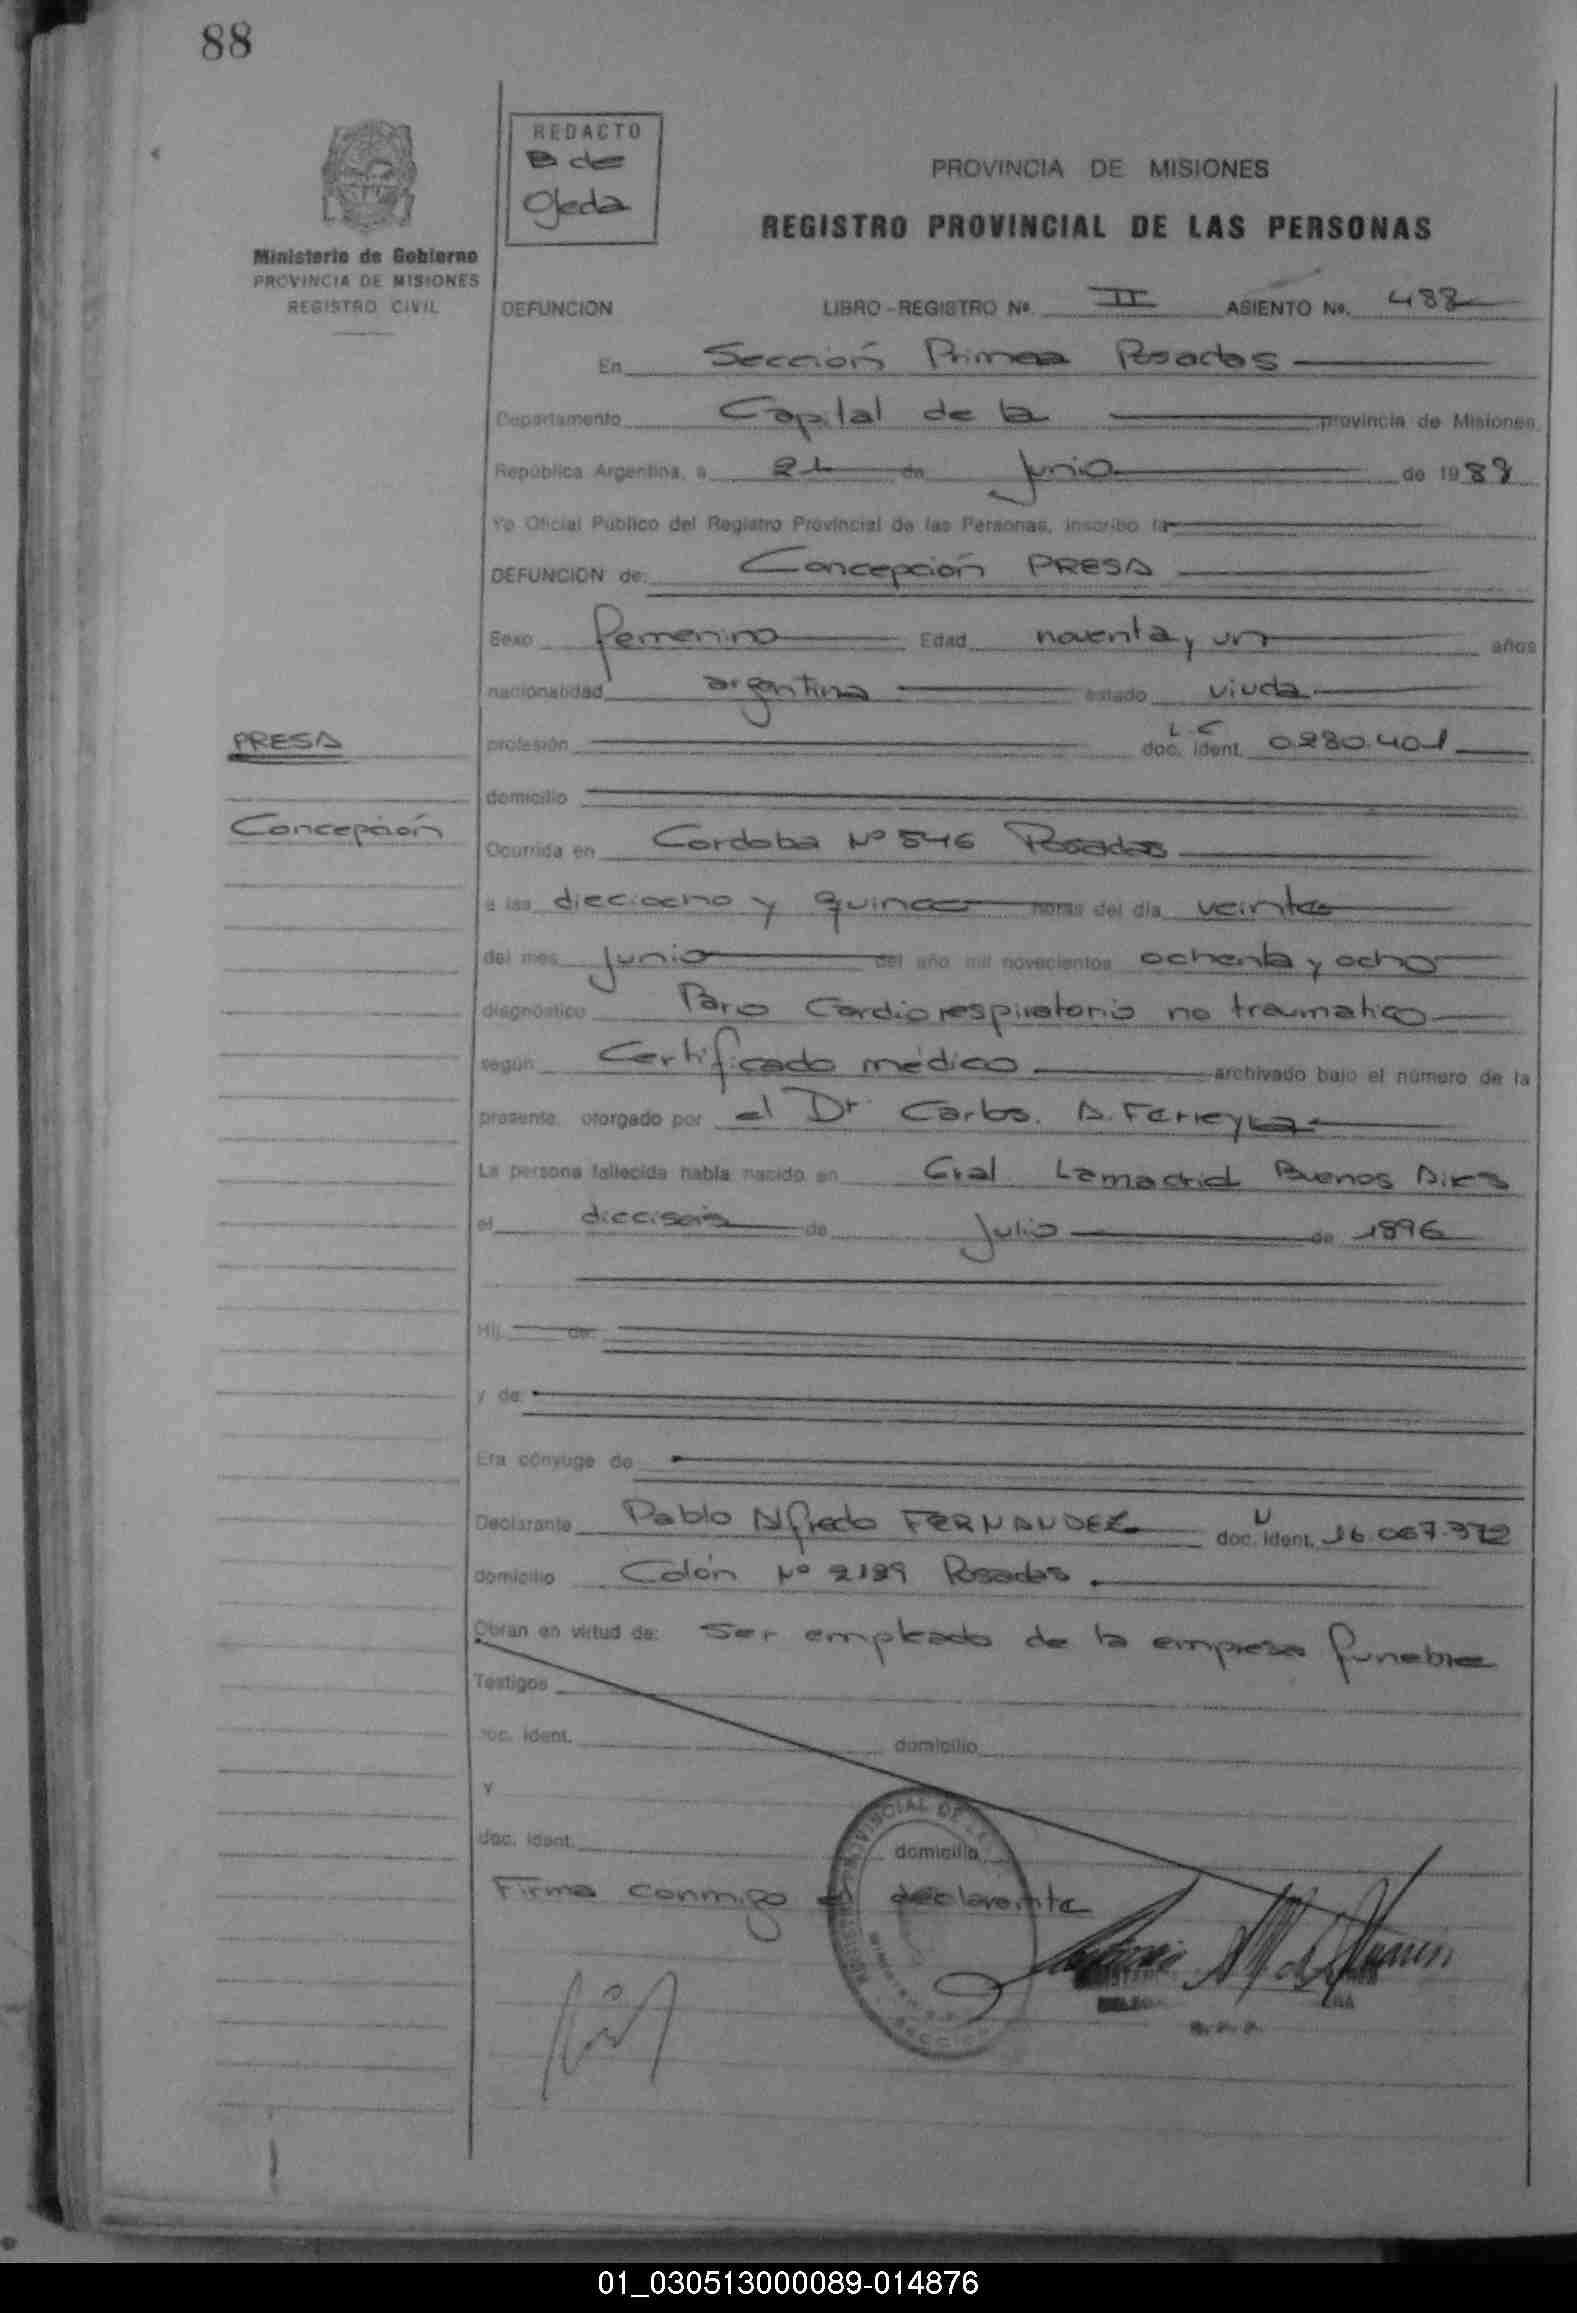 88
REDACTO
B de
Ojeda
PROVINCIA DE MISIONES
REGISTRO PROVINCIAL DE LAS PERSONAS
Ministerio de Gobierno
PROVINCIA DE MISIONES
REGISTRO CIVIL
DEFUNCION LIBRO-REGISTRO Nº. II ASIENTO Nº. 488
En Sección Primera Posadas
Departamento Capital de la provincia de Misiones,
República Argentina, a 21 de Junio de 1988
Yo Oficial Público del Registro Provincial de las Personas, inscribo la
DEFUNCION de: Concepción PRESA
Sexo femenino Edad noventa y un años
nacionalidad argentina estado viuda
PRESA
profesión L.C doc. ident. 0280.401
domicilio
Concepción
Ocurrida en Cordoba Nº 546 Posadas
a las dieciocho y quince horas del día veinte
del mes Junio del año mil novecientos ochenta y ocho
diagnóstico Paro Cardiorespiratorio no traumatico
según Certificado médico archivado bajo el número de la
presente, otorgado por el Dr. Carlos. A. Ferreyra
La persona fallecida había nacido en Gral. Lamadrid Buenos Aires
el dieciseis de Julio de 1896
Hij de:
y de:
Era cónyuge de
Declarante Pablo Alfredo FERNANDEZ doc. ident. 16.067.372
domicilio Colón Nº 2189 Posadas
Obran en virtud de: ser empleado de la empresa funebre
Testigos
doc. ident. domicilio
y
doc. ident. domicilio
Firma conmigo el declarante
01_030513000089-014876